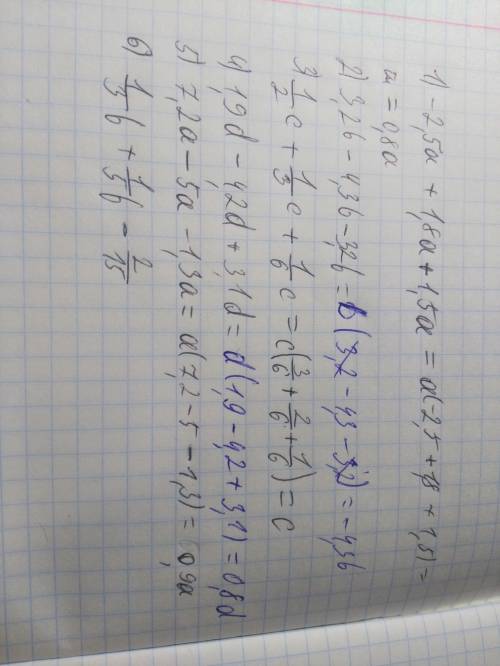 1) -2,5a + 1,8a + 1,5a = a(-2,5 + 1,8 + 1,5) =
= 0,8a
2) 3,2b - 4,3b - 3,2b = b(3,2 - 4,3 - 3,2) = -4,3b
3) 1/2 c + 1/3 c + 1/6 c = c(3/6 + 2/6 + 1/6) = c
4) 1,9d - 4,2d + 3,1d = d(1,9 - 4,2 + 3,1) = 0,8d
5) 7,2a - 5a - 1,3a = a(7,2 - 5 - 1,3) = 0,9a
6) 1/3 b + 1/5 b - 2/15